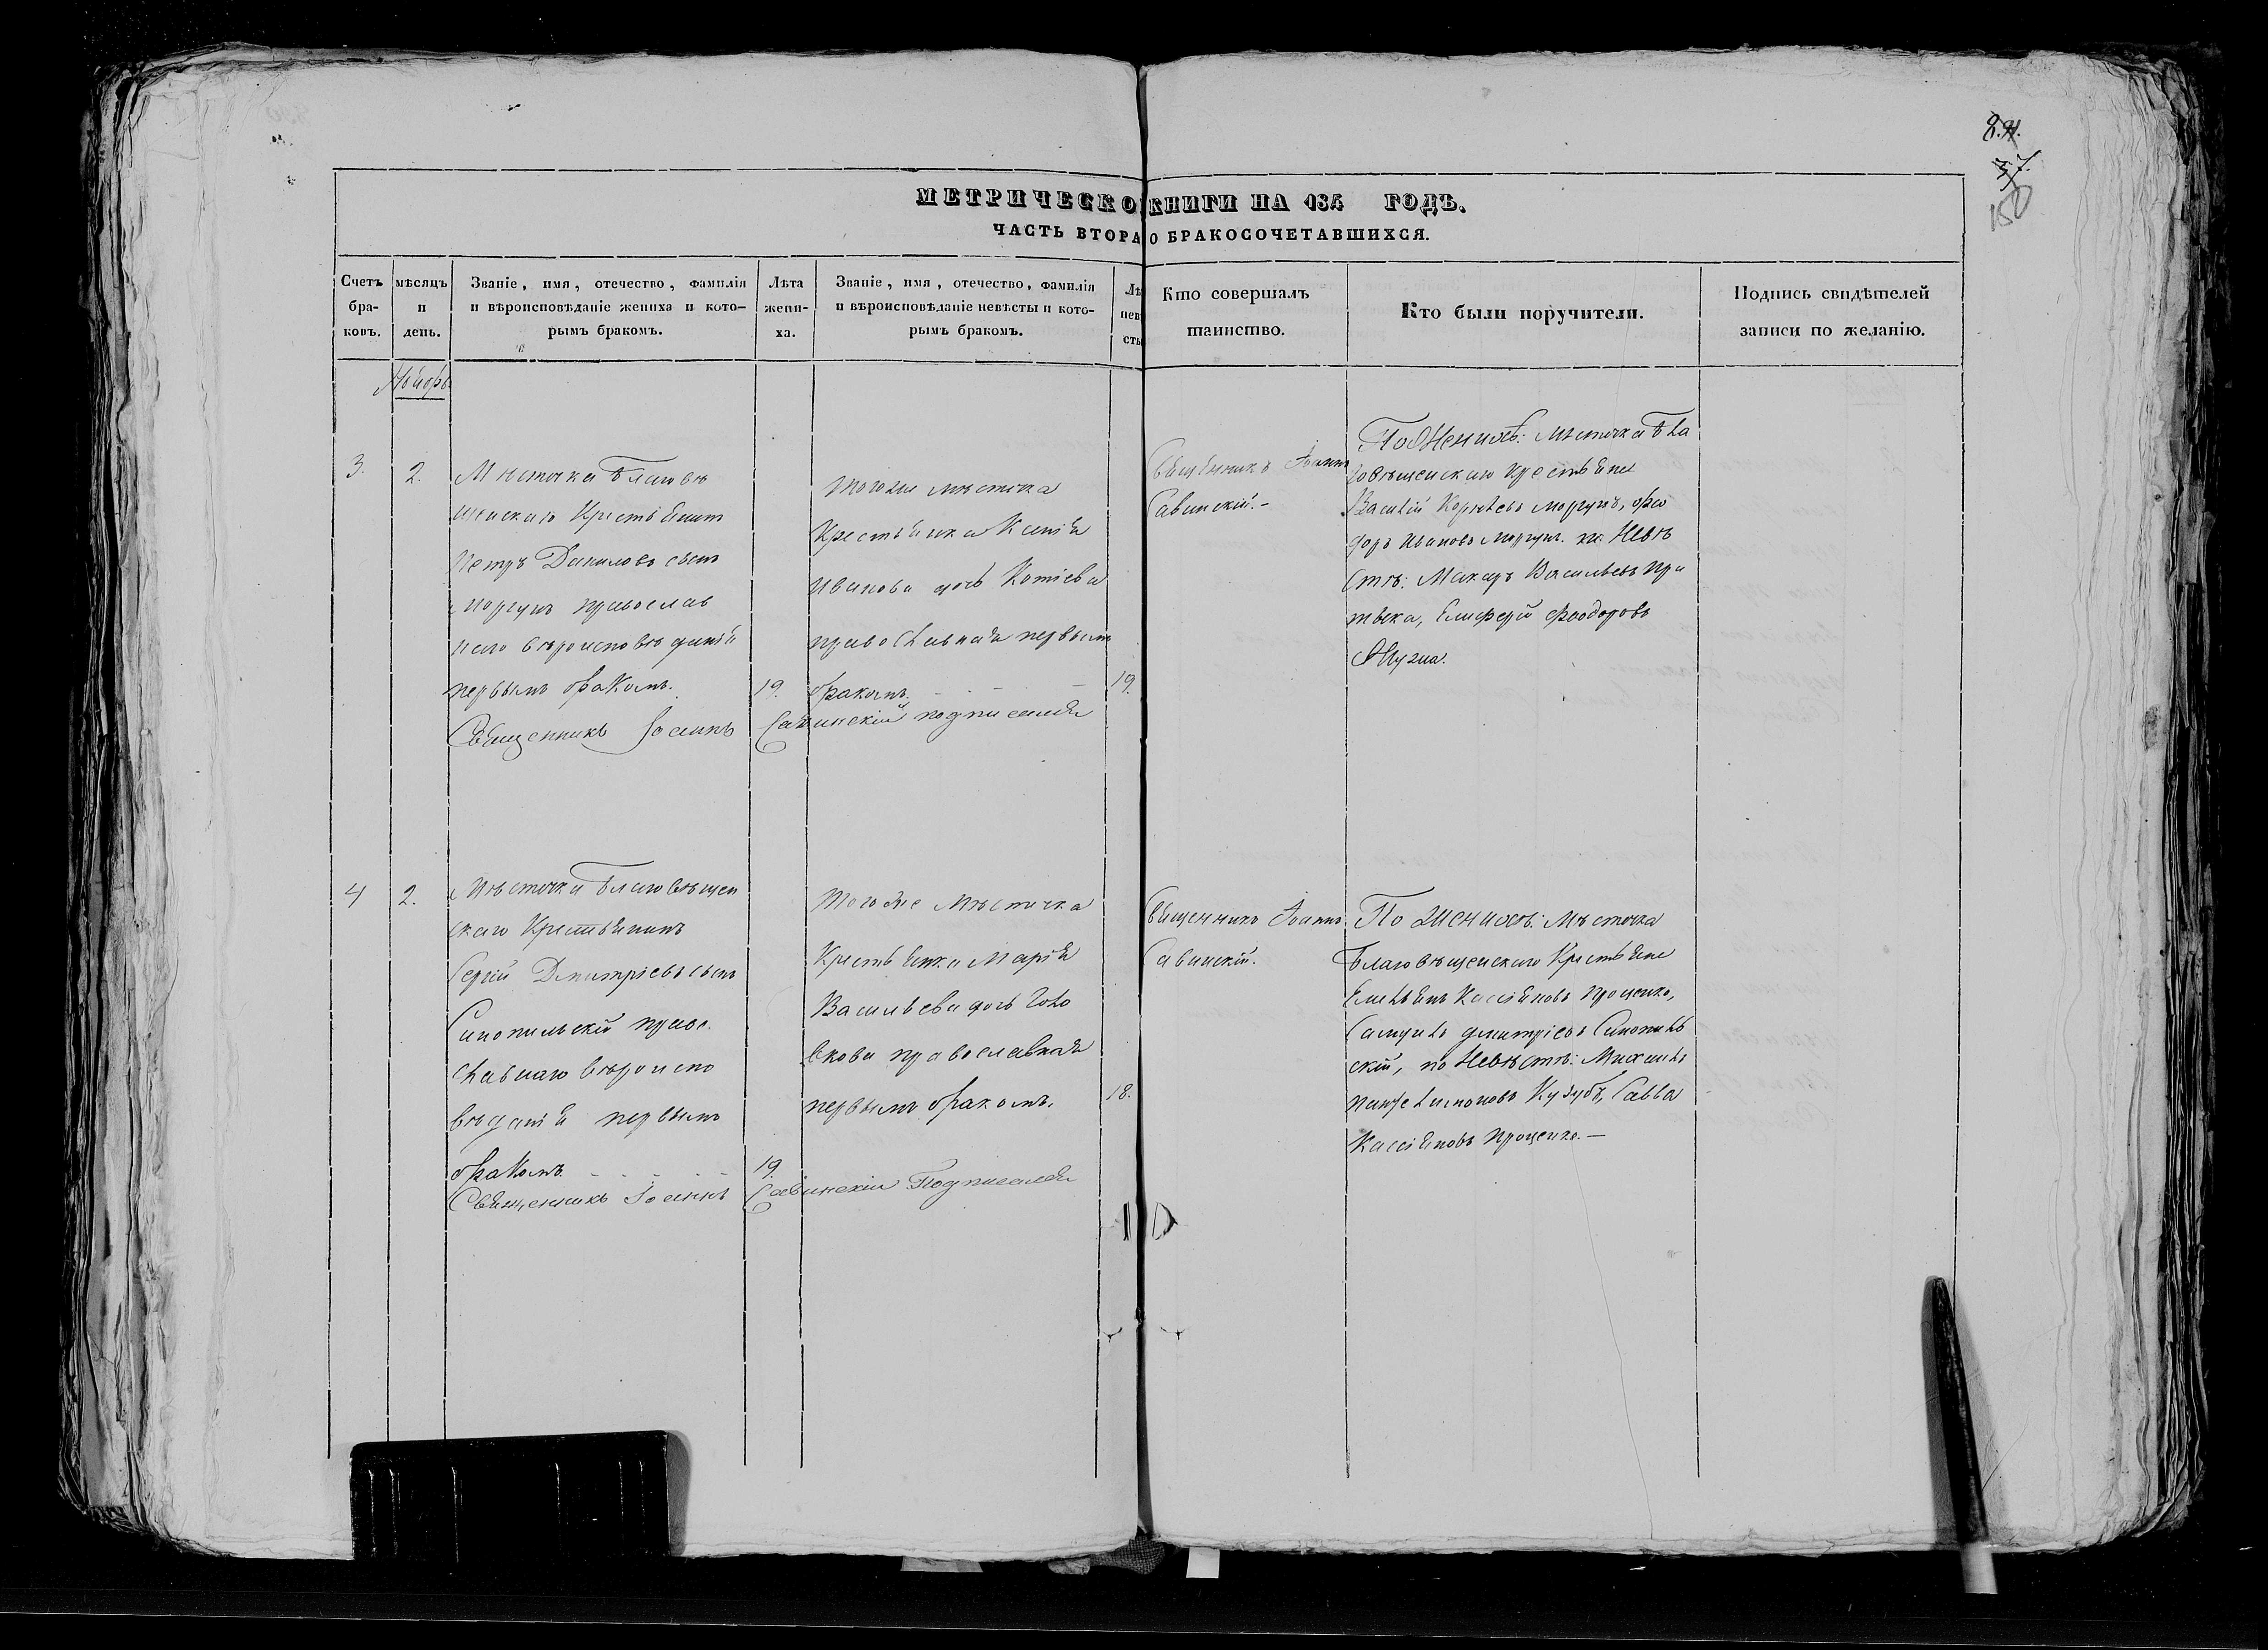 МЕТРИЧЕСКО КНИГИ НА 185 ГОДЪ.
ЧАСТЬ ВТОРА О БРАКОСОЧЕТАВШИХСЯ.
Счетъ бра- ковъ.
мѣсяцъ и день.
Званіе, имя, отечество, фамилія и вѣроисповѣданіе жениха и кото- рымъ бракомъ.
Лѣта жени- ха.
Званіе, имя, отечество, фамилія и вѣроисповѣданіе невѣсты и кото- рымъ бракомъ.
Лѣ нев сты
Кто совершалъ таинство.
Кто были поручители.
Подпись свидѣтелей записи по желанію.
Ноябрь
3.
2.
Мѣстечка Благовѣ
щенскаго Крестьянинъ
Петръ Даниловъ сынъ
Моргунъ православ
наго вѣроисповѣданія
первымъ бракомъ.
19.
Тогоже мѣстечка
Крестьянка
Иванова дочь Котіева
православная первымъ
бракомъ.
19.
Священникъ Іоаннъ Савинскій подписался
Священникъ Іоаннъ
Савинскій.-
По Женихѣ: Мѣстечка Бла
говѣщенскаго Крестьяне
Василій Моргунъ, Фео
доръ Ивановъ Моргунъ. по Невѣ
стѣ: Макаръ Васильевъ При
Елиферій Феодоровъ
4
2.
Мѣстечка Благовѣщен
скаго Крестьянинъ
Сергій Дмитріевъ сынъ
Синопильскій право
славнаго вѣроиспо
вѣданія первымъ
бракомъ.
19.
Тогоже Мѣстечка
Крестьянка Марія
Васильева дочь Голо
вкова православная
первымъ бракомъ.
18.
Священникъ Іоаннъ Савинскій Подписался
Священникъ Іоаннъ
Савинскій.
По Женихѣ: Мѣстечка
Благовѣщенскаго Крестьяне
Емельянъ Кассіяновъ Проценко,
Самуилъ Дмитріевъ Синопиль
скій, по Невѣстѣ: Михаилъ
Пантелимоновъ Савва
Кассіяновъ Проценко.—